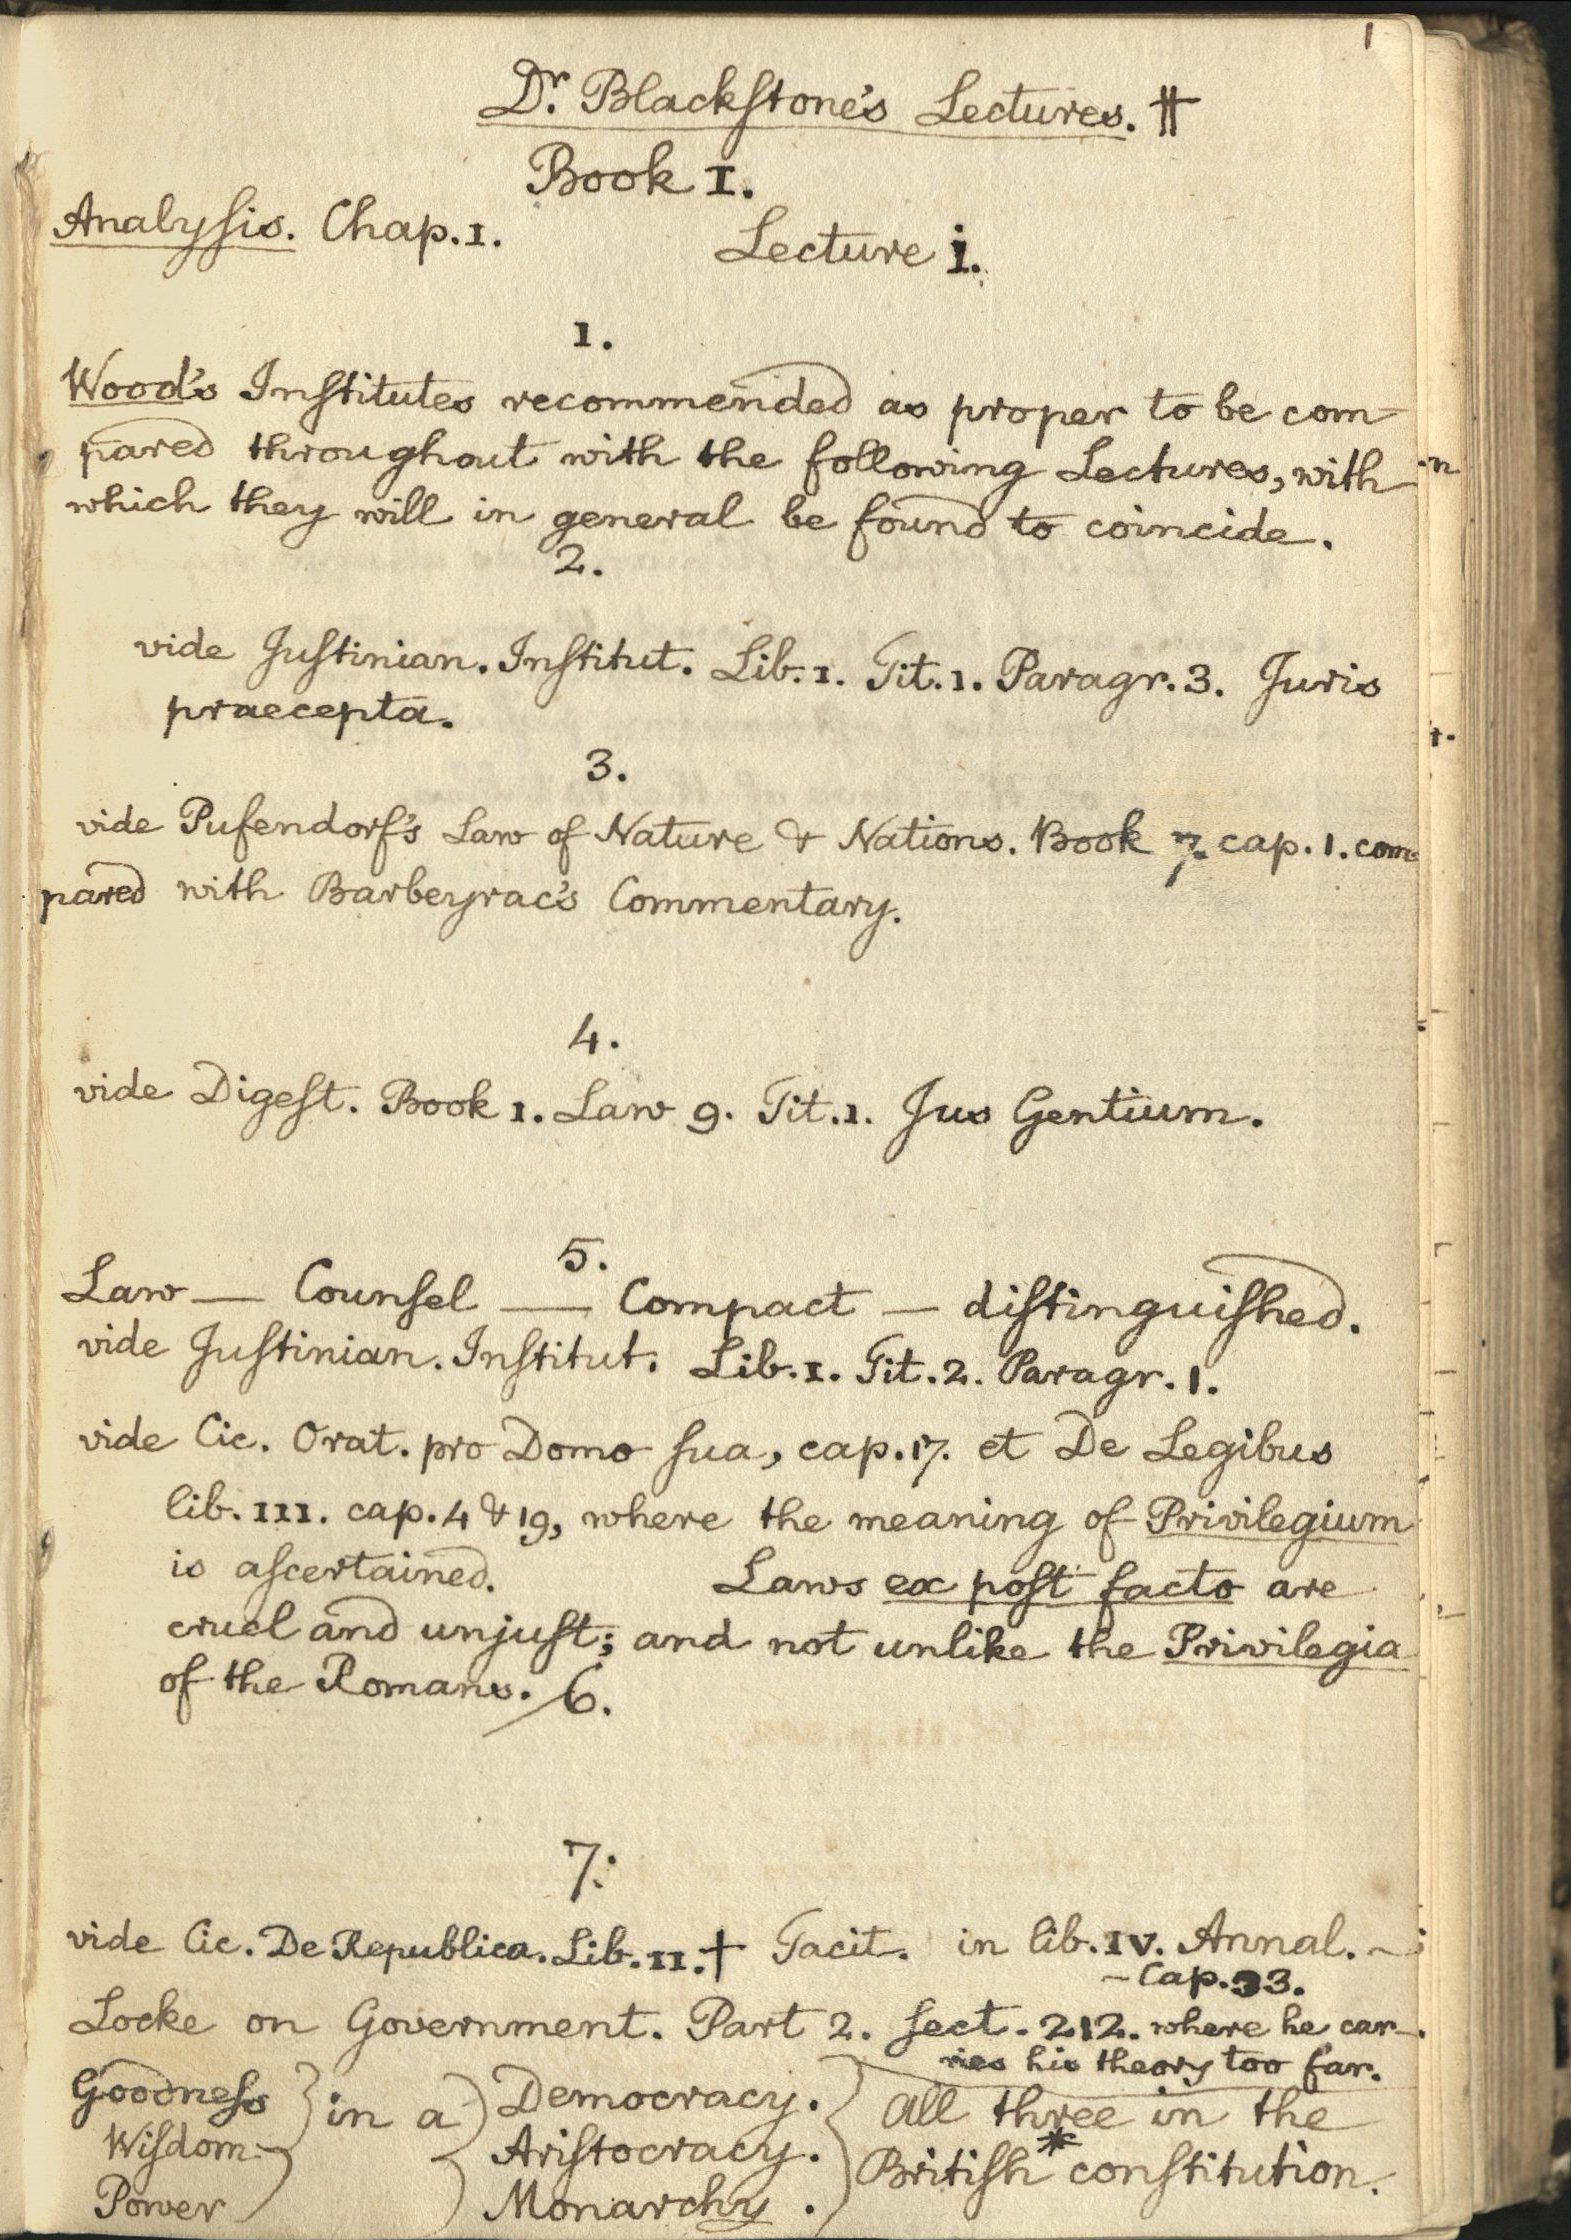 1
Dr. Blackſtone's Lectures. ⧺
Book I.
Analyſis. Chap. 1.
Lecture i.
1.
Wood's Inſtitutes recommended as proper to be com-
pared throughout with the following Lectures, with
which they will in general be found to coincide.
2.
vide Juſtinian. Inſtitut. Lib. 1. Tit. 1. Paragr. 3. Juris
praecepta.
3.
vide Pufendorf's Law of Nature & Nations. Book 7. cap. 1. com-
pared with Barbeyrac's Commentary.
4.
vide Digeſt. Book 1. Law 9. Tit. 1. Jus Gentium.
5.
Law — Counſel — Compact — diſtinguiſhed.
vide Juſtinian. Inſtitut. Lib. 1. Tit. 2. Paragr. 1.
vide Cic. Orat. pro Domo ſua, cap. 17. et De Legibus
lib. III. cap. 4 & 19, where the meaning of Privilegium
is aſcertained. Laws ex poſt facto are
cruel and unjuſt; and not unlike the Privilegia
of the Romans. / 6.
7:
vide Cic. De Republica. Lib. II. † Tacit. in lib. IV. Annal. ~
~ Cap. 33.
Locke on Government. Part 2. ſect. 212. where he car-
ries his theory too far.
Goodneſs } in a } Democracy. } All three in the
Wiſdom } Ariſtocracy. } Britiſh * conſtitution.
Power } Monarchy. }